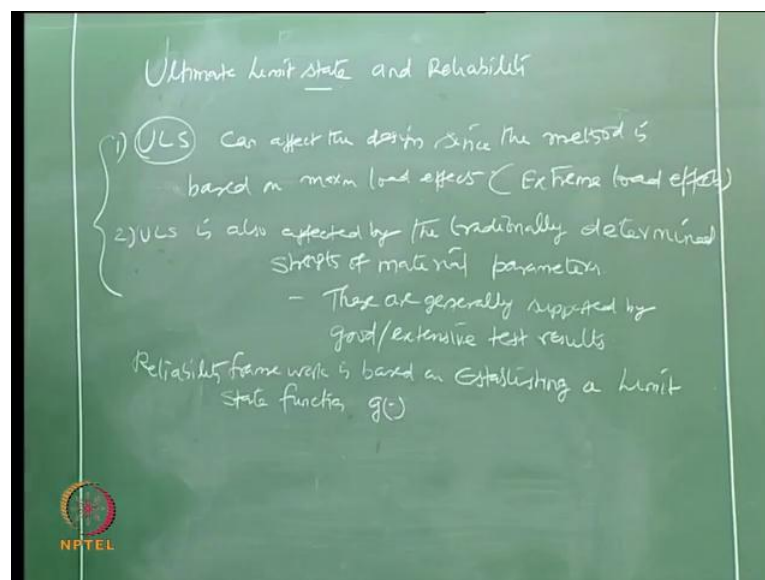 Ultimate Limit state and Reliability
1) ULS Can affect the design since the method is
based on maxm load effects (Extreme load effects)
2) ULS is also affected by the traditionally determined
strengths of material parameters.
- These are generally supported by
good/extensive test results
Reliability frame work is based on Establishing a Limit
state function g(·)
NPTEL